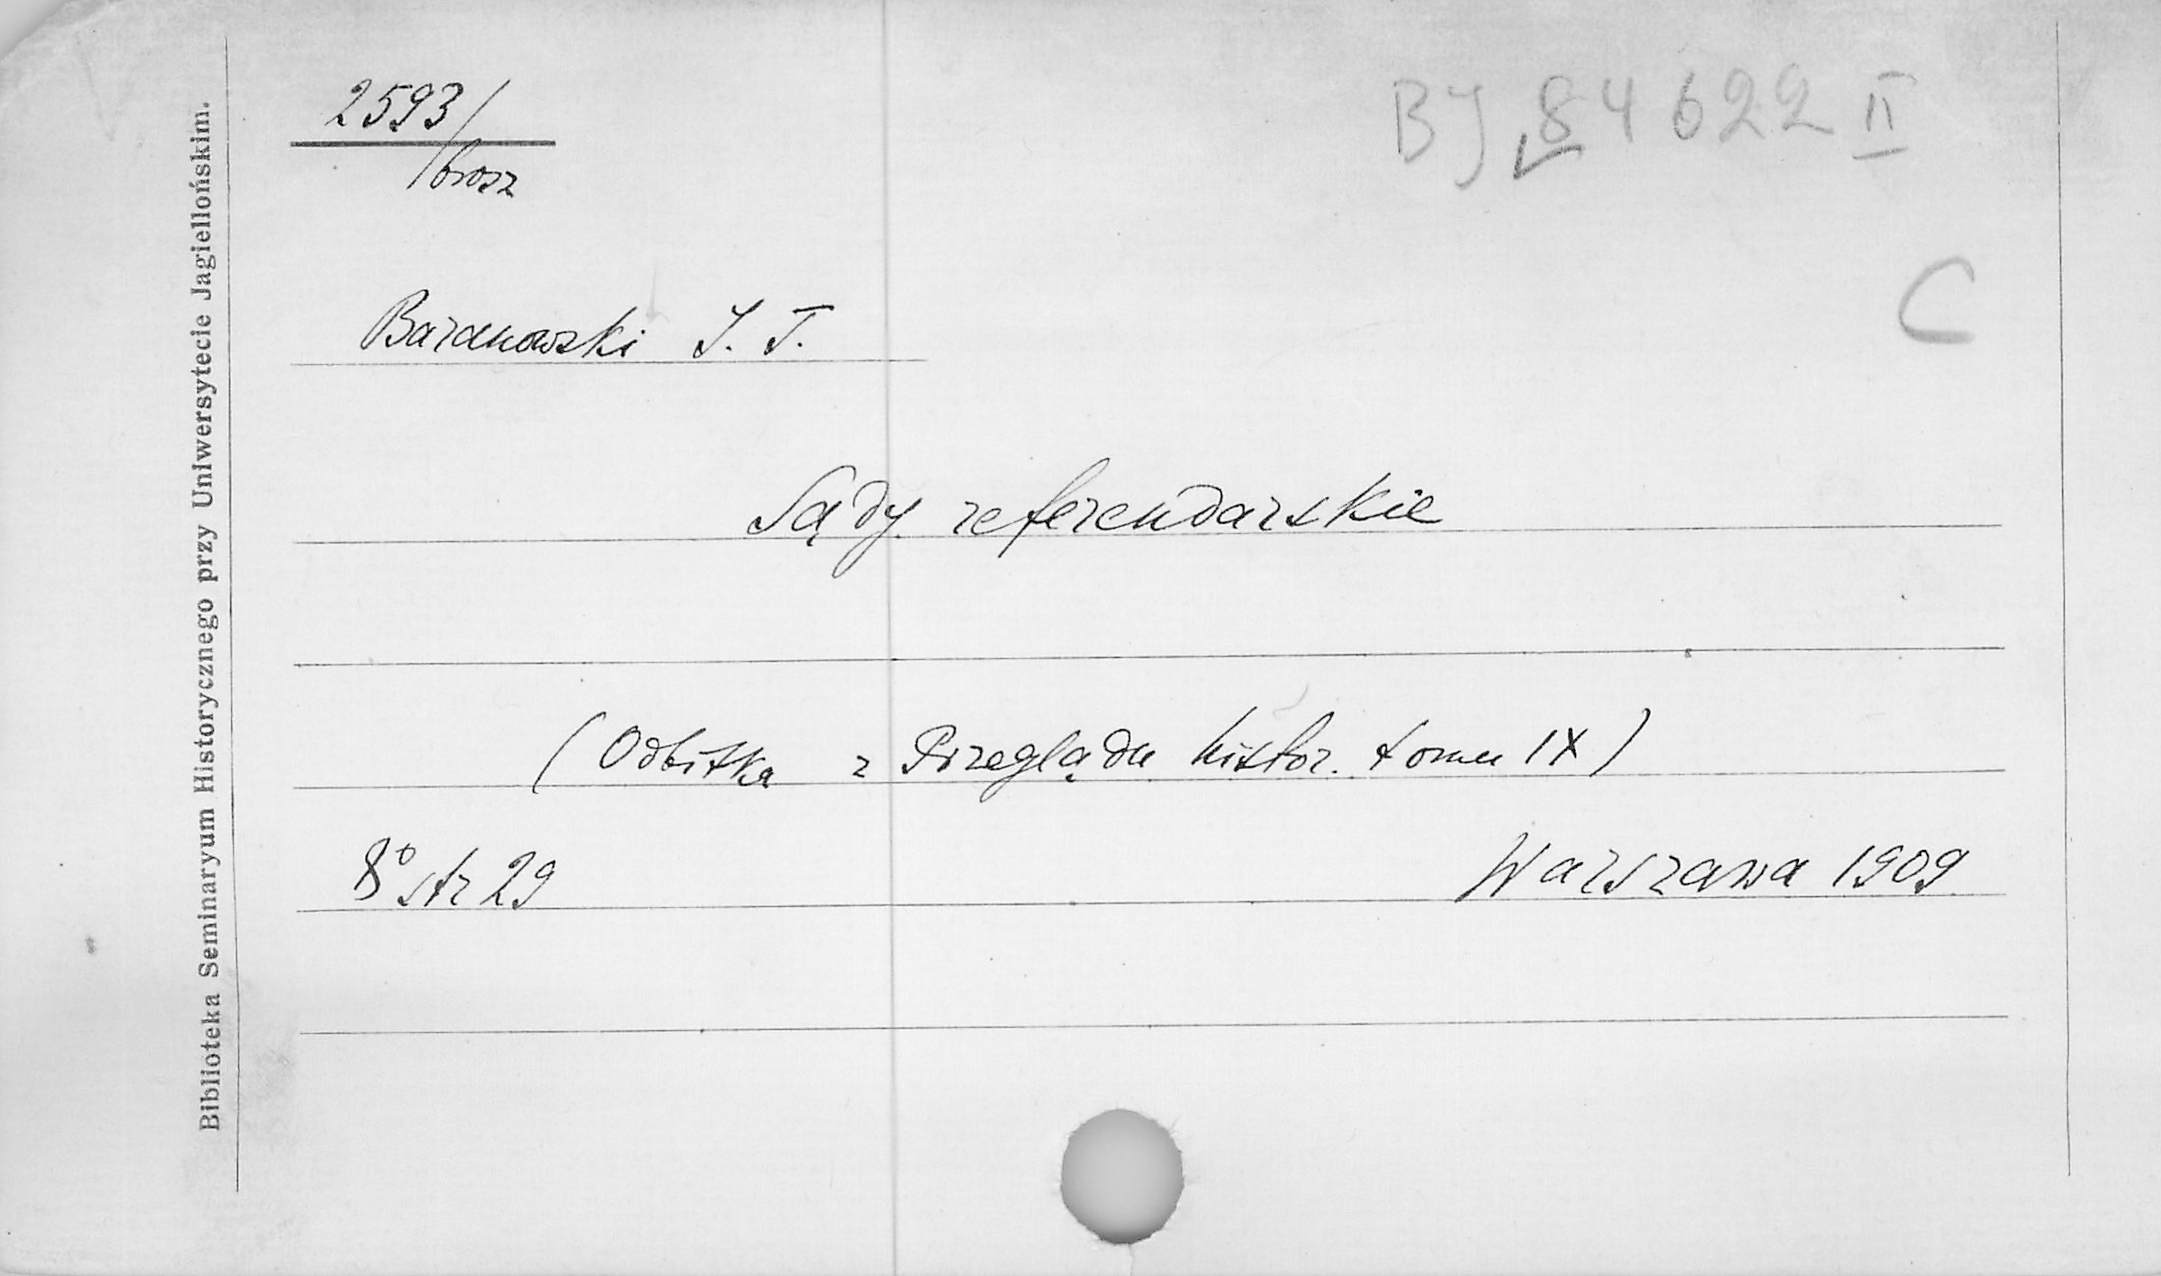 2593/
brosz
BJ 84622 II
C
Baranowski I. T.
Sądy referendarskie
(Odbitka z Przeglądu histor. tomu IX)
8° str 29
Warszawa 1909
Biblioteka Seminaryum Historycznego przy Uniwersytecie Jagiellońskim.